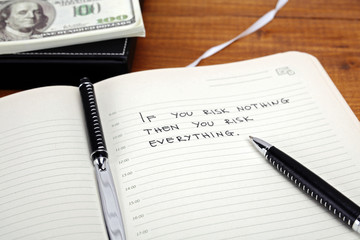 100
IF YOU RISK NOTHING
THEN YOU RISK
EVERYTHING.